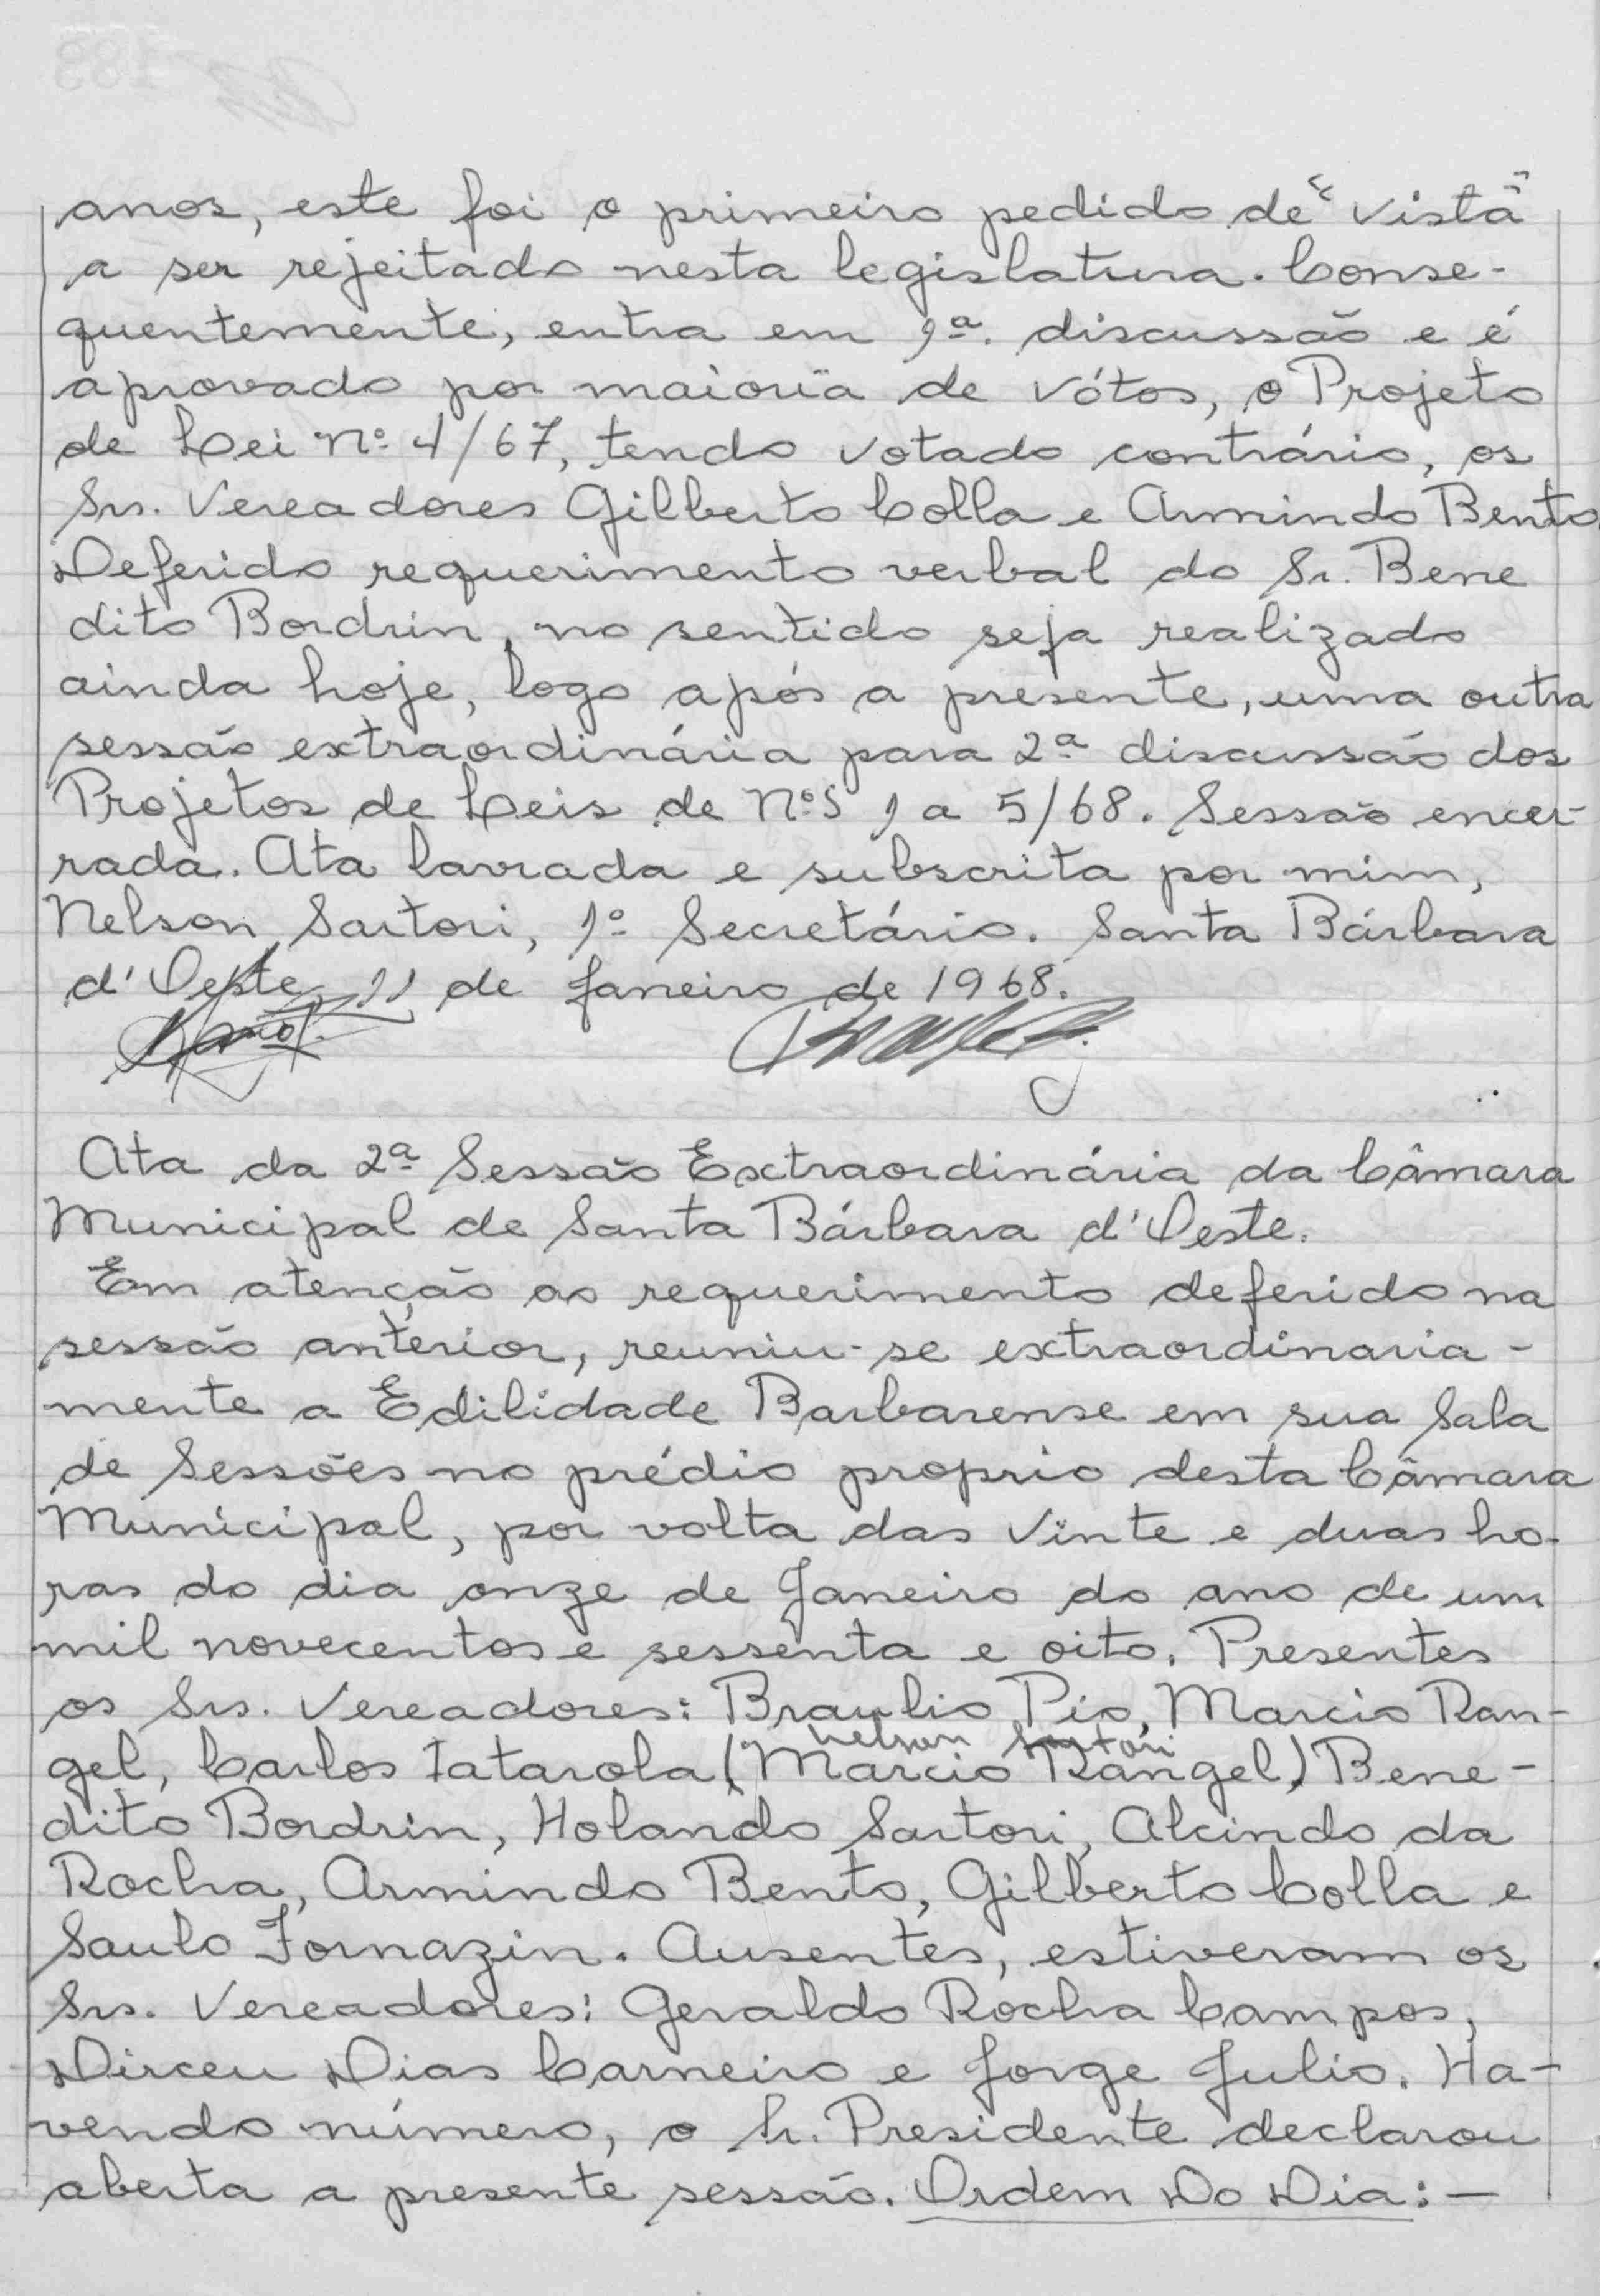 anos, este foi o primeiro pedido de "vista"
a ser rejeitado nesta legislatura. Conse-
quentemente, entra em 1ª. discussão e é
aprovado por maioria de vótos, o Projeto
de Lei Nº 4/67, tendo votado contrário, os
Srs. Vereadores Gilberto Colla e Armindo Bento.
Deferido requerimento verbal do Sr. Bene
dito Bordrin, no sentido seja realizado
ainda hoje, logo após a presente, uma outra
sessão extraordinária para 2ª discussão dos
Projetos de Leis de Nºs 1 a 5/68. Sessão encer-
rada. Ata lavrada e subscrita por mim,
Nelson Sartori, 1º Secretário. Santa Bárbara
d'Oeste, 11 de Janeiro de 1968.
Ata da 2ª Sessão Extraordinária da Câmara
Municipal de Santa Bárbara d'Oeste.
Em atenção ao requerimento deferido na
sessão anterior, reuniu-se extraordinaria-
mente a Edilidade Barbarense em sua Sala
de Sessões no prédio proprio desta Câmara
Municipal, por volta das vinte e duas ho-
ras do dia onze de Janeiro do ano de um
mil novecentos e sessenta e oito. Presentes
os Srs. Vereadores: Braulio Pio, Marcio Ran-
Nelson Sartori
gel, Carlos Fatarola, (Marcio Rangel) Bene-
dito Bordrin, Holando Sartori, Alcindo da
Rocha, Armindo Bento, Gilberto Colla e
Saulo Fornazin. Ausentes, estiveram os
Srs. Vereadores: Geraldo Rocha Campos,
Dirceu Dias Carneiro e Jorge Julio. Ha-
vendo número, o Sr. Presidente declarou
aberta a presente sessão. Ordem Do Dia: —